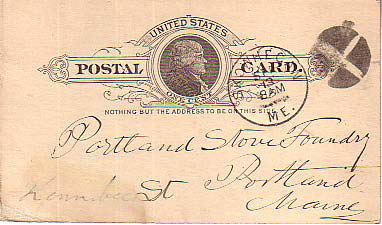 UNITED STATES
POSTAL CARD.
ONE CENT
NOTHING BUT THE ADDRESS TO BE ON THIS SIDE.
13
8 AM
ME.
Portland Stove Foundry
Kennebec St Portland
Maine